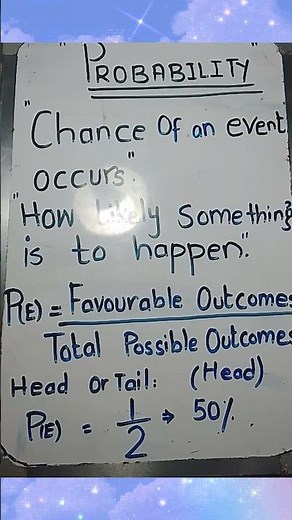 PROBABILITY
"Chance Of an event
occurs"
"How likely Something
is to happen".
P(E) = Favourable Outcomes
Total Possible Outcomes
Head or Tail: (Head)
P(E) = 1/2 → 50%